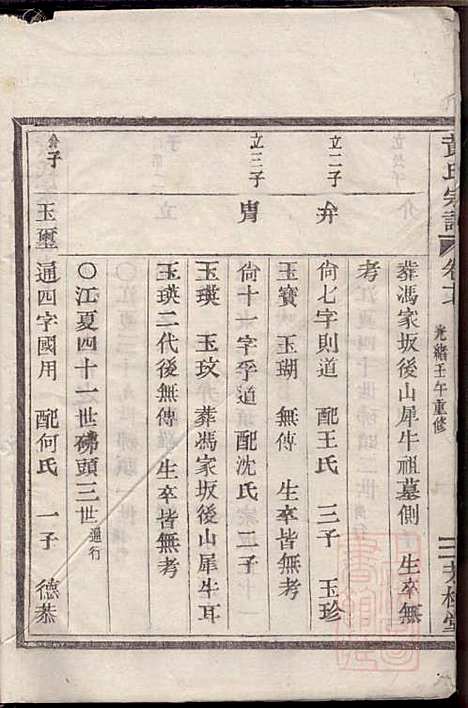 黃氏宗譜
光緒壬午重修
葬馮家坂後山犀牛祖墓側 生卒無
考
立二子 弁 尙七字則道 配王氏 三子 玉珍
玉寶 玉瑚 無傳 生卒皆無考
立三子 胄 尙十一字孚道 配沈氏 二子
玉瑛 玉玟 葬馮家坂後山犀牛耳
玉瑛二代後無傳 生卒皆無考
〇江夏四十一世磗頭三世 通行
玉璽 通四字國用 配何氏 一子 德恭